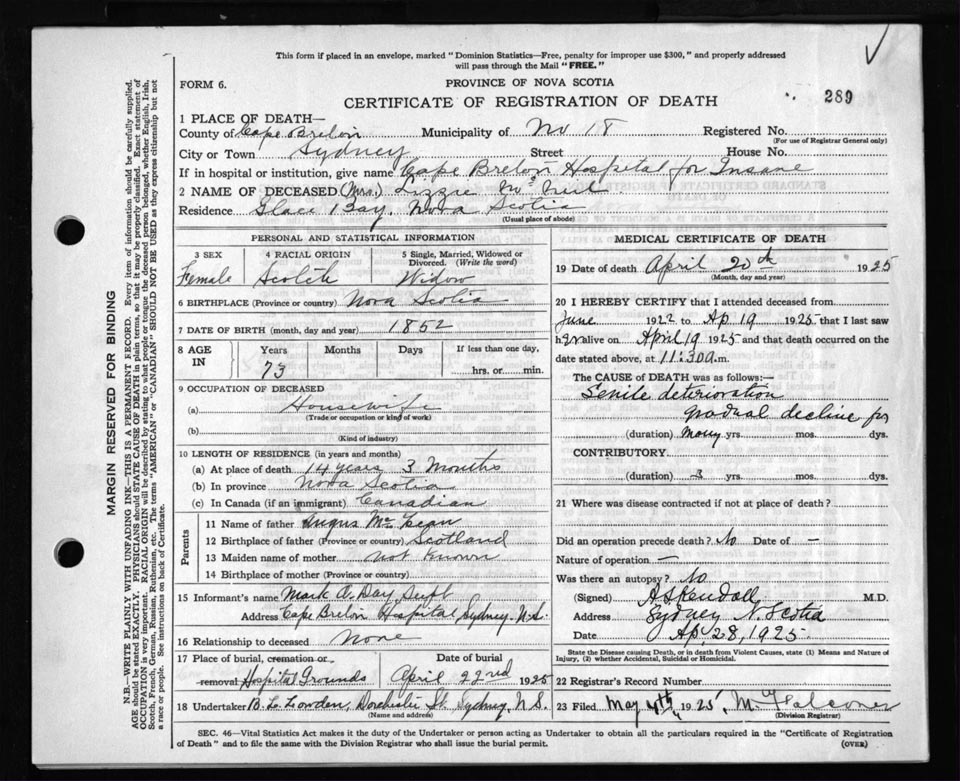 This form if placed in an envelope, marked "Dominion Statistics—Free, penalty for improper use $300," and properly addressed
will pass through the Mail "FREE."
FORM 6.
PROVINCE OF NOVA SCOTIA
CERTIFICATE OF REGISTRATION OF DEATH
289
1 PLACE OF DEATH—
County of Cape Breton Municipality of No 18 Registered No.
(For use of Registrar General only)
City or Town Sydney Street House No.
If in hospital or institution, give name Cape Breton Hospital for Insane
2 NAME OF DECEASED (Mrs.) Lizzie McNeil
Residence Glace Bay, Nova Scotia
(Usual place of abode)
PERSONAL AND STATISTICAL INFORMATION
3 SEX
Female
4 RACIAL ORIGIN
Scotch
5 Single, Married, Widowed or
Divorced. (Write the word)
Widow
6 BIRTHPLACE (Province or country) Nova Scotia
7 DATE OF BIRTH (month, day and year) 1852
8 AGE
IN
Years
73
Months
Days
If less than one day,
hrs. or min.
9 OCCUPATION OF DECEASED
(a) Housewife
(Trade or occupation or kind of work)
(b)
(Kind of industry)
10 LENGTH OF RESIDENCE (in years and months)
(a) At place of death 14 years 3 Months
(b) In province Nova Scotia
(c) In Canada (if an immigrant) Canadian
Parents
11 Name of father Angus Mc
12 Birthplace of father (Province or country) Scotland
13 Maiden name of mother not known
14 Birthplace of mother (Province or country)
15 Informant's name Mark A. Day, Supt
Address Cape Breton Hospital, Sydney. N.S.
16 Relationship to deceased None
17 Place of burial, cremation or
removal Hospital Grounds
Date of burial
April 22nd 1925
18 Undertaker B. L. Lowden, Dorchester St, Sydney, N.S.
(Name and address)
MEDICAL CERTIFICATE OF DEATH
19 Date of death April 20th 1925
(Month, day and year)
20 I HEREBY CERTIFY that I attended deceased from
June 1922 to Ap 19 1925 that I last saw
her alive on April 19 1925 and that death occurred on the
date stated above, at 11:30 a.m.
The CAUSE of DEATH was as follows:—
Senile deterioration
gradual decline for
(duration) many yrs. mos. dys.
CONTRIBUTORY
(duration) yrs. mos. dys.
21 Where was disease contracted if not at place of death?
Did an operation precede death? No Date of —
Nature of operation —
Was there an autopsy? No
(Signed) A S Kendall M.D.
Address Sydney N. Scotia
Date Ap, 28, 1925
State the Disease causing Death, or in death from Violent Causes, state (1) Means and Nature of
Injury, (2) whether Accidental, Suicidal or Homicidal.
22 Registrar's Record Number
23 Filed May 4th 1925 M Falconer
(Division Registrar)
SEC. 46—Vital Statistics Act makes it the duty of the Undertaker or person acting as Undertaker to obtain all the particulars required in the "Certificate of Registration
of Death" and to file the same with the Division Registrar who shall issue the burial permit.
(OVER)
MARGIN RESERVED FOR BINDING
N.B.—WRITE PLAINLY WITH UNFADING INK—THIS IS A PERMANENT RECORD. Every item of information should be carefully supplied.
AGE should be stated EXACTLY. PHYSICIANS should STATE CAUSE OF DEATH in plain terms, so that it may be properly classified. Exact statement of
OCCUPATION is very important. RACIAL ORIGIN will be described by stating to what people or tongue the deceased person belonged, whether English, Irish,
Scotch, French, German, Russian, Ruthenian, etc. The terms "AMERICAN" or "CANADIAN" SHOULD NOT BE USED as they express citizenship but not
a race or people. See instructions on back of Certificate.